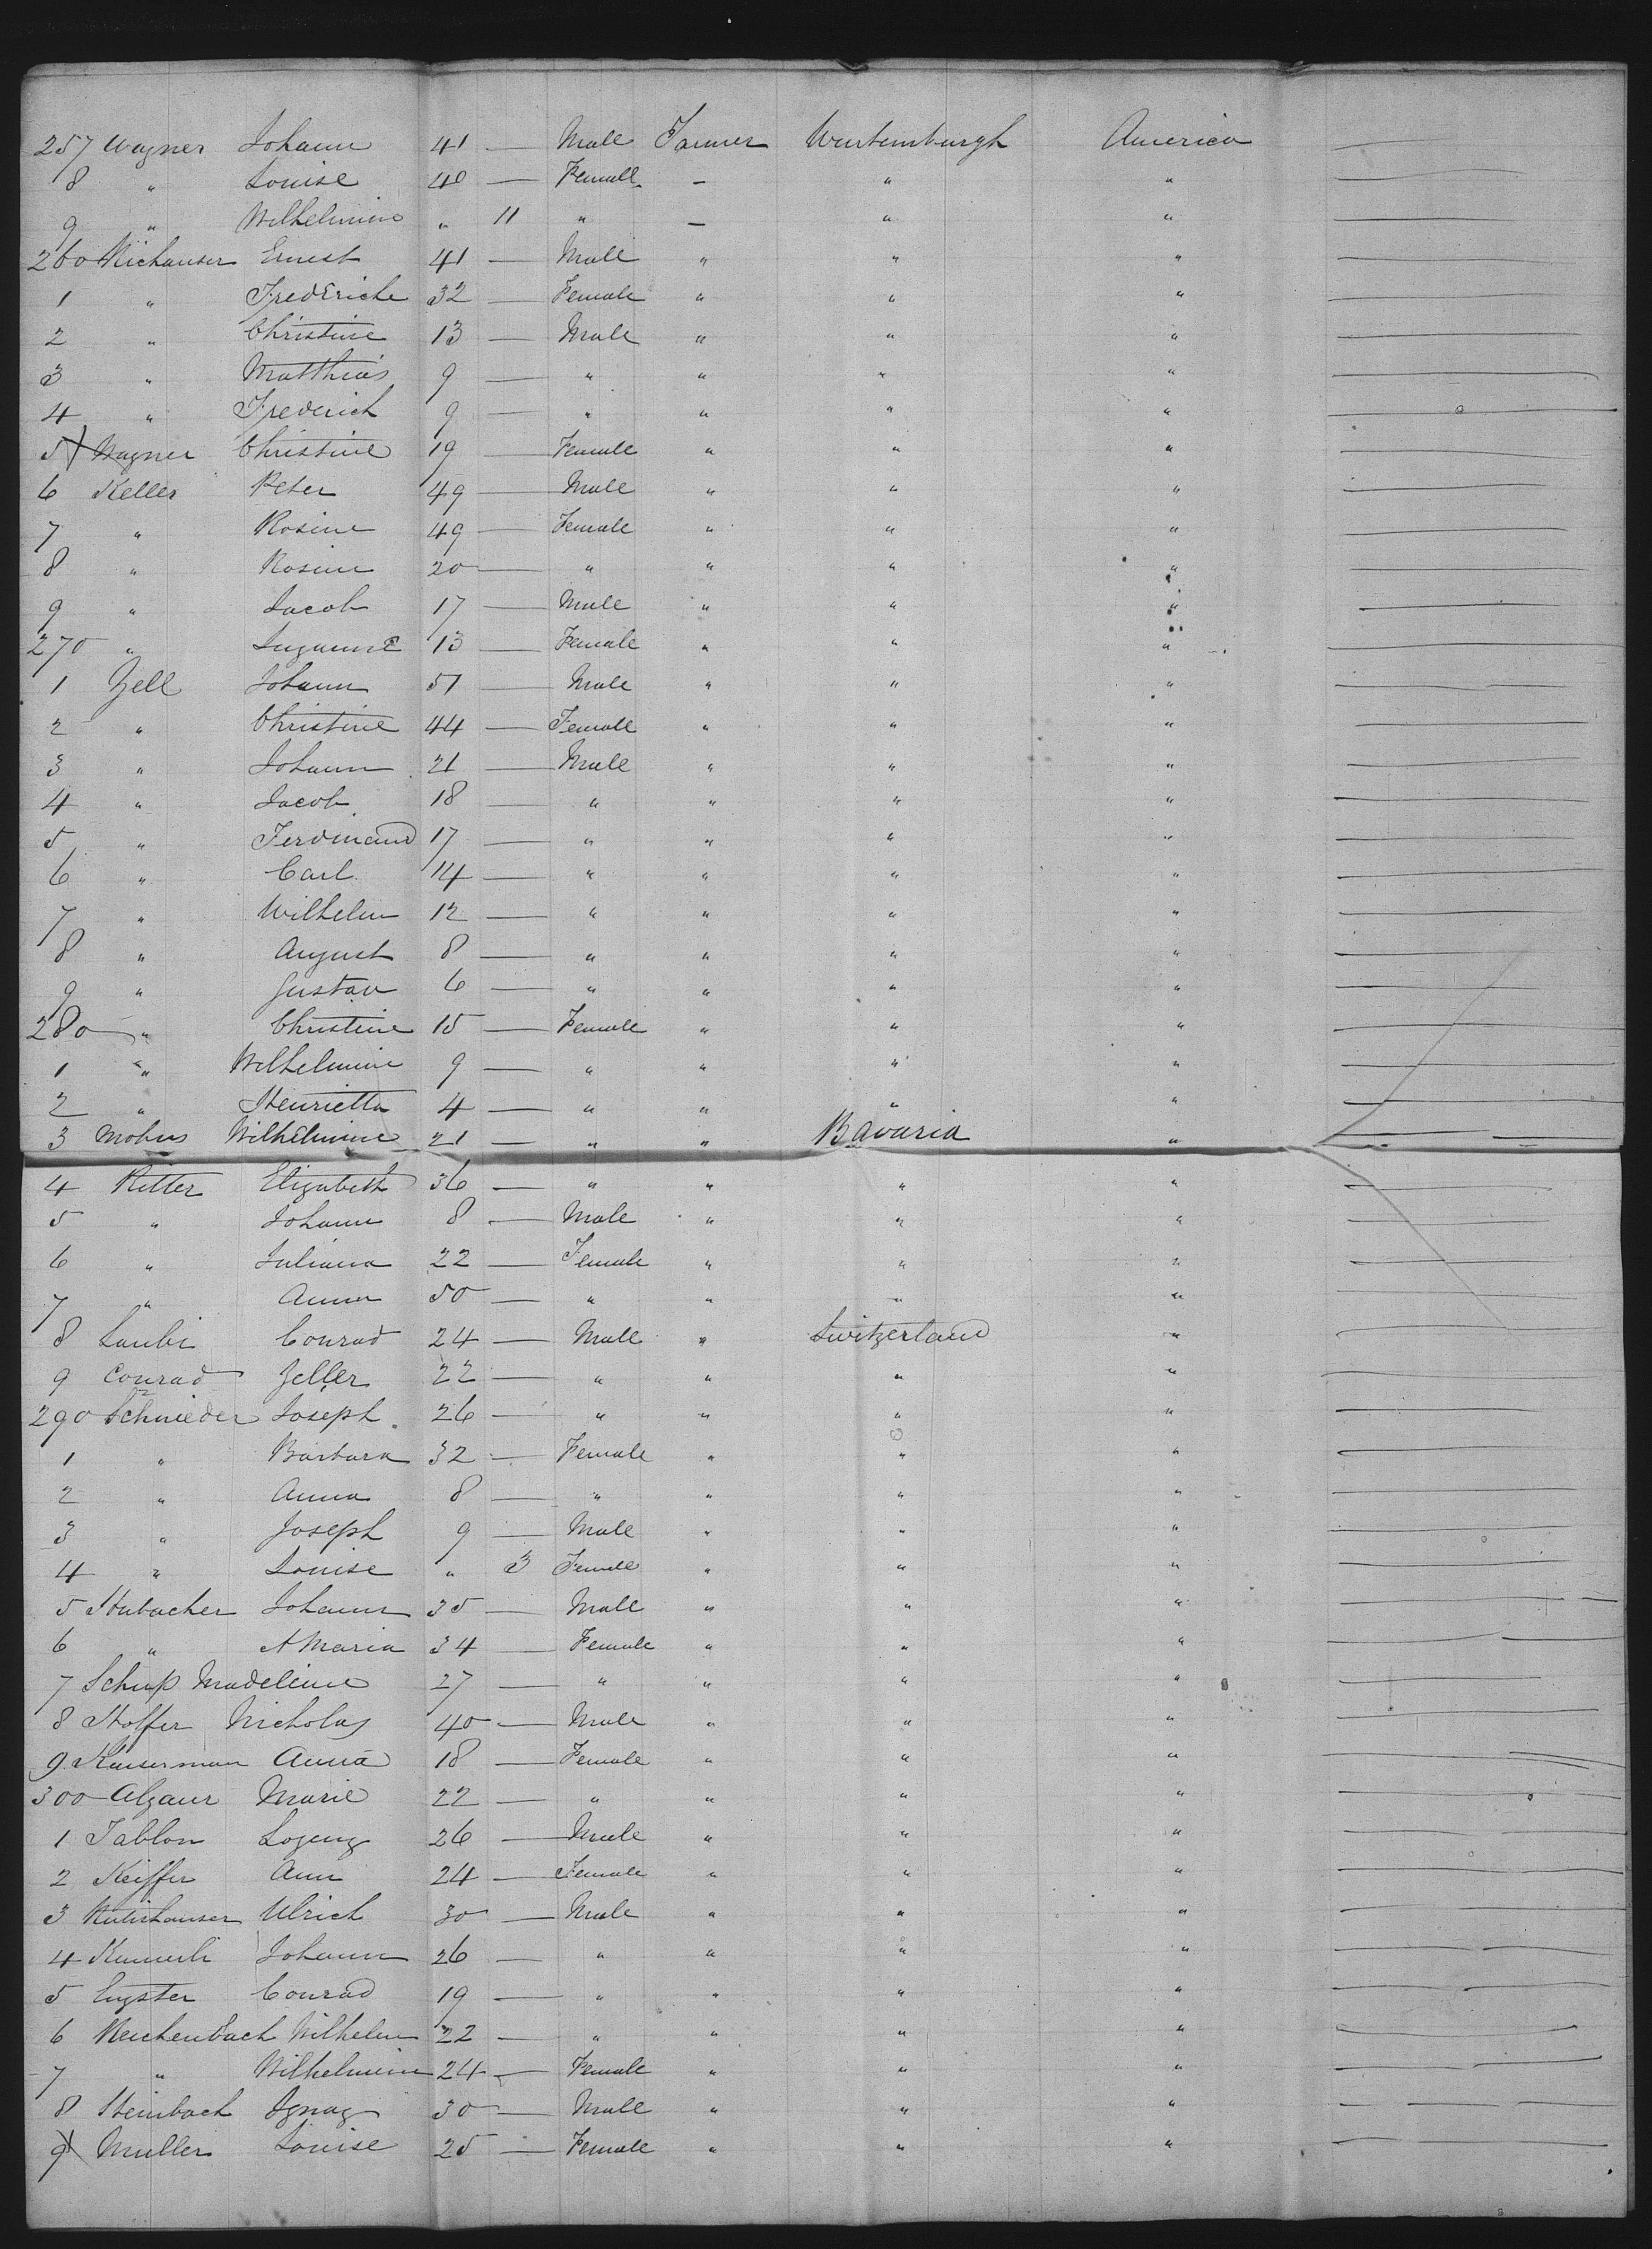 257 Wagner Johann 41 — Male Farmer Wurtemburgh America
8 " Louise 40 — Female — " "
9 " Wilhelmine " 11 " — " "
260 Ernest 41 — Male " " "
1 " Frederiche 32 — Female " " "
2 " Christine 13 — Male " " "
3 " Matthias 9 — " " " "
4 " Frederich 9 — " " " "
5 Wagner Christine 19 — Female " " "
6 Keller Peter 49 — Male " " "
7 " Rosine 49 — Female " " "
8 " Rosine 20 — " " " "
9 " Jacob 17 — Male " " "
270 " Suzanne 13 — Female " " "
1 Zell Johann 51 — Male " " "
2 " Christine 44 — Female " " "
3 " Johann 21 — Male " " "
4 " Jacob 18 — " " " "
5 " Ferdinand 17 — " " " "
6 " Carl 14 — " " " "
7 " Wilhelm 12 — " " " "
8 " August 8 — " " " "
9 " Gustav 6 — " " " "
280 " Christine 15 — Female " " "
1 " Wilhelmine 9 — " " " "
2 " Henrietta 4 — " " " "
3 Mobus Wilhelmine 21 — " " Bavaria "
4 Ritter Elizabeth 36 — " " " "
5 " Johann 8 — Male " " "
6 " Juliana 22 — Female " " "
7 " Anna 50 — " " " "
8 Laubi Conrad 24 — Male " Switzerland "
9 Conrad Zeller 22 — " " " "
290 Schnieder Joseph 26 — " " " "
1 " Barbara 32 — Female " " "
2 " Anna 8 — " " " "
3 " Joseph 9 — Male " " "
4 " Louise " 3 Female " " "
5 Johann 35 — Male " " "
6 " A Maria 34 — Female " " "
7 Schup Madeleine 27 — " " " "
8 Stoffer Nicholas 40 — Male " " "
9 Kauserman Anna 18 — Female " " "
300 Marie 22 — " " " "
1 Tablon 26 — Male " " "
2 Keiffer Ann 24 — Female " " "
3 Ulrich 30 — Male " " "
4 Johann 26 — " " " "
5 Conrad 19 — " " " "
6 Reichenbach Wilhelm 22 — " " " "
7 " Wilhelmine 24 — Female " " "
8 Steinbach Ignaz 30 — Male " " "
9 Muller Louise 25 — Female " " "